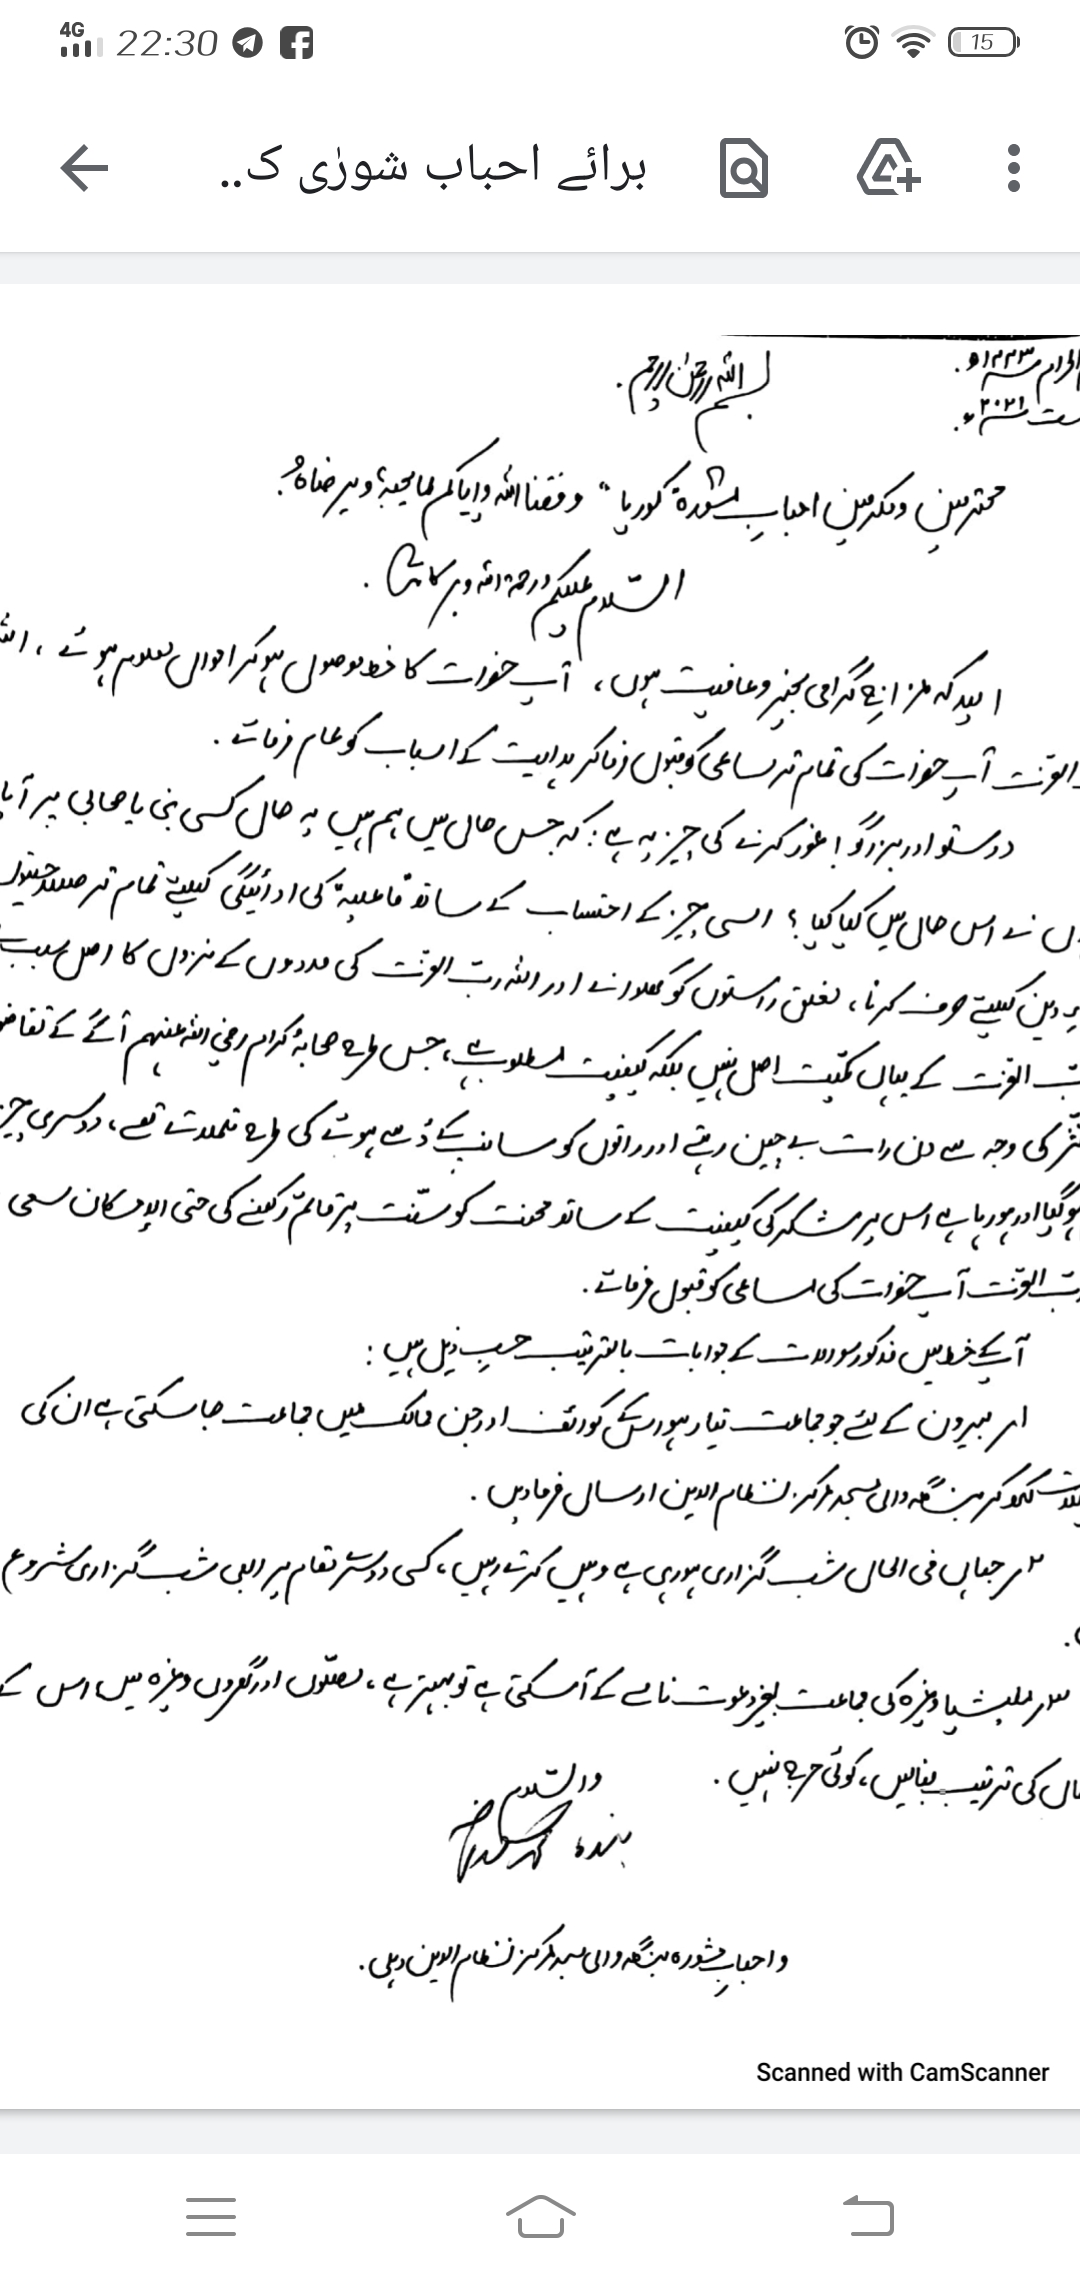 4G 22:30 15
برائے احباب شورٰی ک..
الحرام ۱۴۴۳ھ.
۲۰۲۱ء.
بسم اللہ الرحمٰن الرحیم.
محترمین ومکرمین احبابِ مشورۃ کوریا" وفقنا اللہ وایاکم لما یحبہ ویرضاہ.
السلام علیکم ورحمۃ اللہ وبرکاتہ.
امید کہ مزاج گرامی بخیر وعافیت ہوں، آپ حضرات کا خط موصول ہوکر احوال معلوم ہوئے، اللہ
العزت آپ حضرات کی تمام تر مساعی کو قبول فرماکر ہدایت کے اسباب کو عام فرمائے.
دوستو اور بزرگو! غور کرنے کی چیز یہ ہے: کہ جس حال میں ہم ہیں یہ حال کسی نبی یا صحابی پر آیا
نے اس حال میں کیا کیا؟ اسی چیز کے احتساب کے ساتھ کی ادائیگی کیلئے تمام تر صلاحیتوں
دین کیلئے صرف کرنا، تعلق راستوں کو کھلوانے اور اللہ رب العزت کی مددوں کے نزول کا اصل سبب
العزت کے یہاں کمیّت اصل نہیں بلکہ کیفیت مطلوب ہے، جس طرح صحابۂ کرام رضی اللہ عنہم آگے کے
کی وجہ سے دن رات بے چین رہتے اور راتوں کو سانپ کے ڈسے ہوئے کی طرح تلملاتے تھے، دوسری چیز
ہوگیا اور ہو رہا ہے اس پر شکر کی کیفیت کے ساتھ محنت کو سنّت پر قائم رکھنے کی حتی الامکان سعی
رب العزت آپ حضرات کی مساعی کو قبول فرمائے.
آپکے خط میں مذکور سوالات کے جوابات بالترتیب حسبِ ذیل ہیں:
۱؍ بیرون کے لئے جو جماعت تیار ہو اس کی کوائف اور جن ممالک میں جماعت جاسکتی ہے ان کی
لکھ کر بنگلہ والی مسجد مرکز نظام الدین ارسال فرمادیں.
۲؍ جہاں فی الحال شب گزاری ہورہی ہے وہیں کرتے رہیں، کسی دوسرے مقام پر ابھی شب گزاری شروع
۳؍ ملیشیا وغیرہ کی جماعت بغیر دعوت نامے کے آسکتی ہے تو بہتر ہے، مصلّوں اور گھروں وغیرہ میں اس کے
کی ترتیب بنالیں، کوئی حرج نہیں.
والسّلام
بندہ محمد سعد
واحباب مشورہ بنگلہ والی مسجد مرکز نظام الدین دہلی.
Scanned with CamScanner